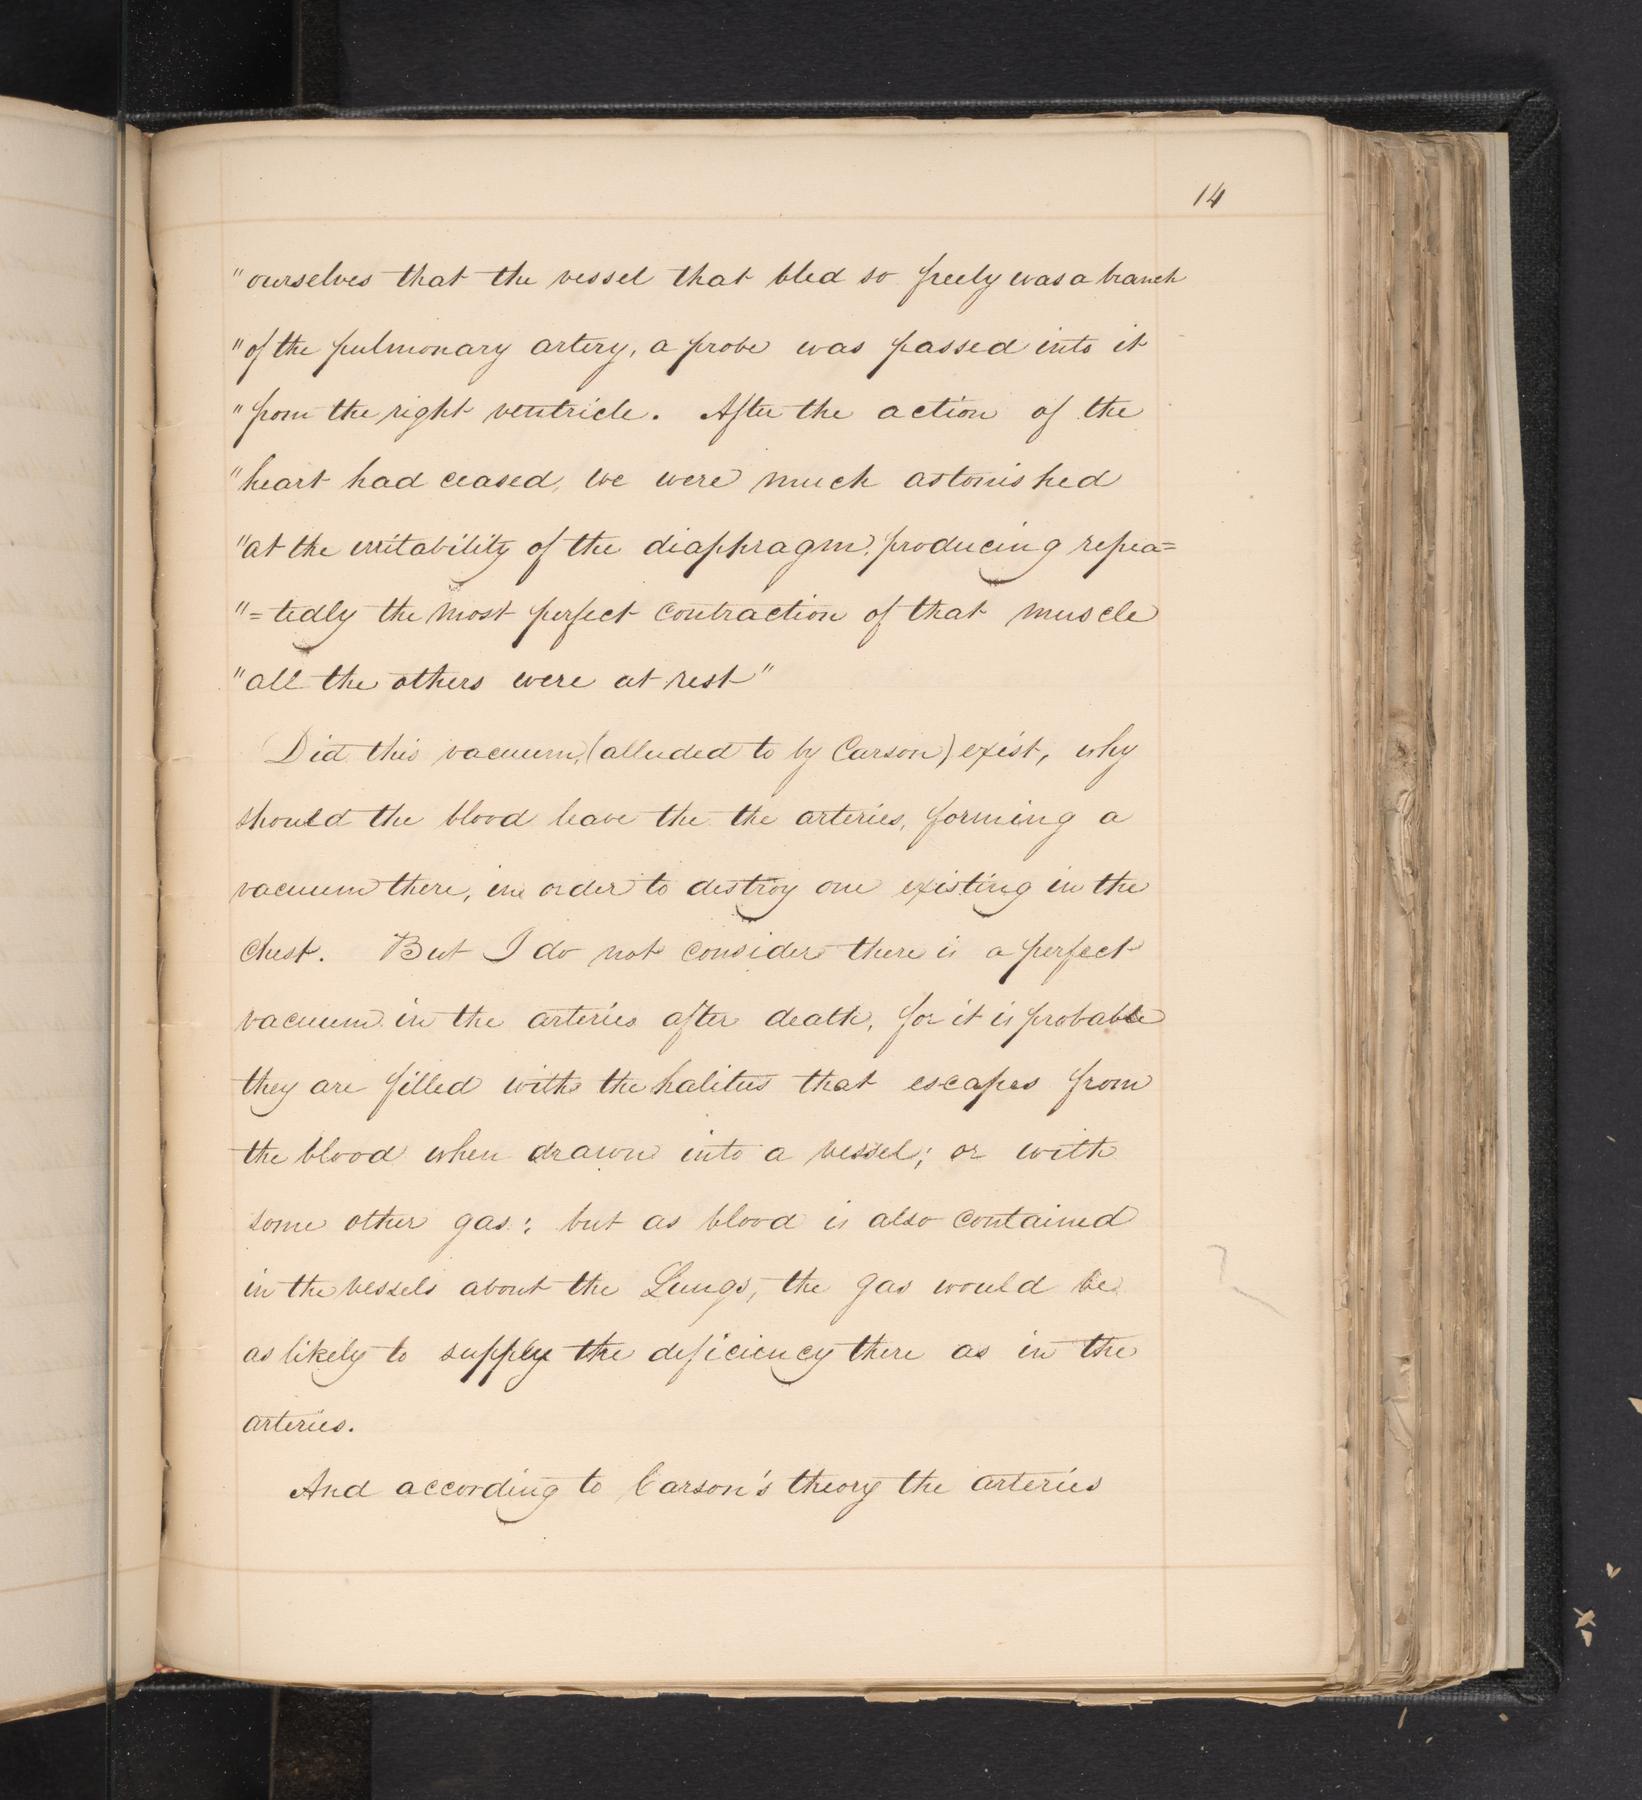 14
"ourselves that the vessel that bled so freely was a branch
"of the pulmonary artery, a probe was passed into it
"from the right ventricle. After the action of the
"heart had ceased, we were much astonished
"at the irritability of the diaphragm, producing repea=
"=tedly the most perfect contraction of that muscle
"all the others were at rest"
Did this vacuum, (alluded to by Carson) exist, why
should the blood leave the the arteries, forming a
vacuum there, in order to destroy one existing in the
chest. But I do not consider there is a perfect
vacuum in the arteries after death, for it is probable
they are filled with the halitus that escapes from
the blood when drawn into a vessel; or with
some other gas: but as blood is also contained
in the vessels about the Lungs, the gas would be
as likely to supply the deficiency there as in the
arteries.
And according to Carson's theory the arteries